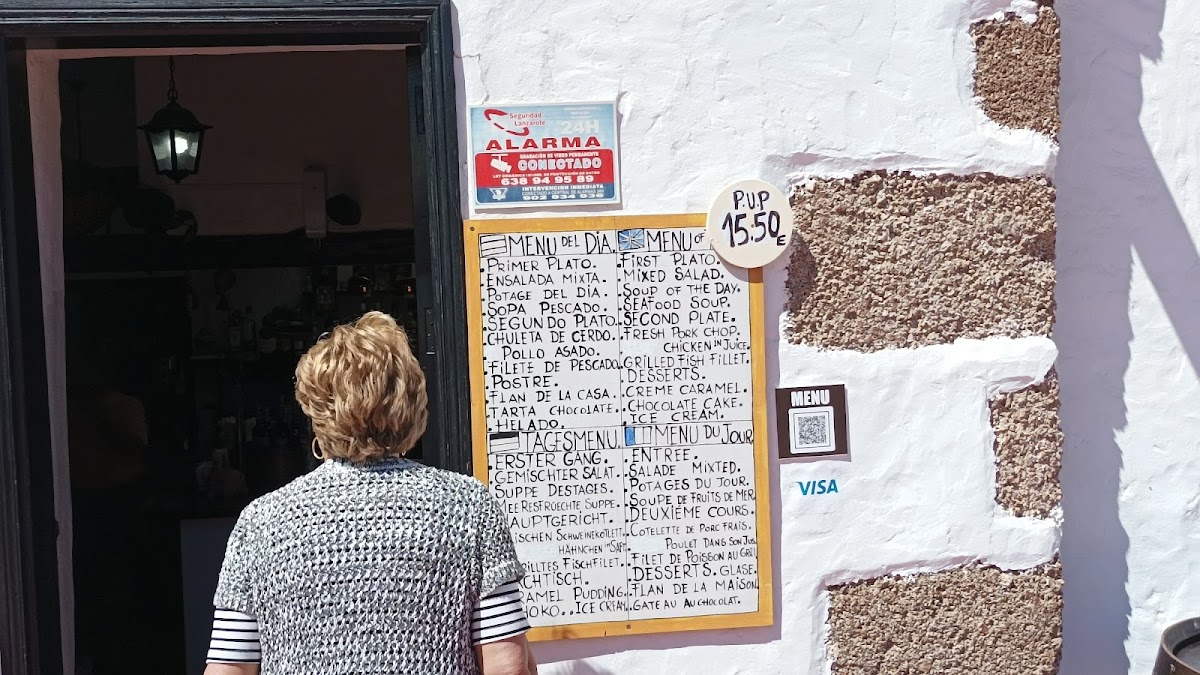 Seguridad
Lanzarote
24H
ALARMA
GRABACIÓN DE VIDEO PERMANENTE
CONECTADO
638 94 95 89
INTERVENCIÓN INMEDIATA
CONECTADO A CENTRAL DE ALARMAS
902 934 936
P.U.P
15.50 E
MENU DEL DIA.
.PRIMER PLATO.
.ENSALADA MIXTA.
.POTAGE DEL DIA.
.SOPA PESCADO.
.SEGUNDO PLATO.
.CHULETA DE CERDO.
.POLLO ASADO.
.FILETE DE PESCADO
.POSTRE.
.FLAN DE LA CASA.
.TARTA CHOCOLATE.
.HELADO.
MENU OF
.FIRST PLATO.
.MIXED SALAD.
.SOUP OF THE DAY.
.SEAFOOD SOUP.
.SECOND PLATE.
.FRESH PORK CHOP.
CHICKEN IN JUICE.
.GRILLED FISH FILLET.
.DESSERTS.
.CREME CARAMEL.
.CHOCOLATE CAKE.
.ICE CREAM.
TAGESMENU.
.ERSTER GANG.
.GEMISCHTER SALAT.
.SUPPE DESTAGES.
MEERESFROECHTE SUPPE.
HAUPTGERICHT.
SCHWEINEKOTLETT
HÄHNCHEN IM SAFT
FISCHFILET.
PUDDING.
ICE CREAM.
MENU DU JOUR
.ENTREE.
.SALADE MIXTED.
.POTAGES DU JOUR.
.SOUPE DE FRUITS DE MER.
.DEUXIÈME COURS.
.COTELETTE DE PORC FRAIS.
POULET DANS SON JUS.
.FILET DE POISSON AU GRIL
.DESSERTS. GLASE.
.FLAN DE LA MAISON
.GATE AU AU CHOCOLAT.
MENU
VISA